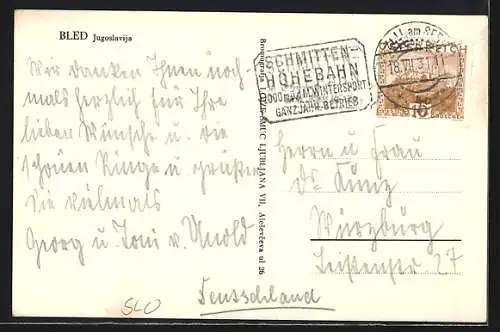 BLED Jugoslavija
Wir danken Ihnen noch-
mals herzlich für Ihre
lieben Wünsche u. die
schönen Ringe u. grüßen
Sie vielmals
Georg u. Toni v. Unold
SLO
LJUBLJANA VII, Aleševčeva ul 26
SCHMITTEN-
HÖHEBAHN
2000 WINTERSPORT
GANZJAHR-BETRIEB
AM SEE
18.III.37
Herrn u Frau
Dr. Kunz
Würzburg
Leistenstr 27
Deutschland